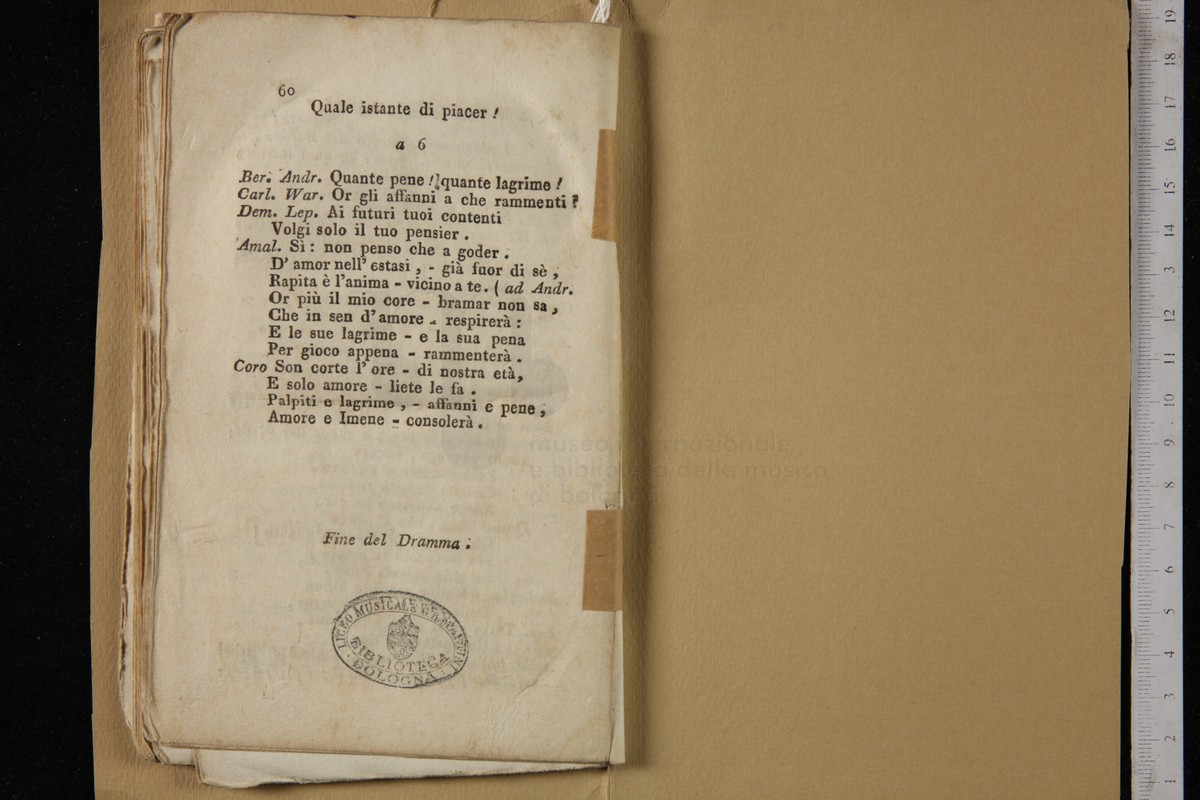 60
Quale istante di piacer !
a 6
Ber. Andr. Quante pene ! quante lagrime !
Carl. War. Or gli affanni a che rammenti ?
Dem. Lep. Ai futuri tuoi contenti
Volgi solo il tuo pensier .
Amal. Sì : non penso che a goder .
D' amor nell' estasi , - già fuor di sè ,
Rapita è l'anima - vicino a te . ( ad Andr.
Or più il mio core - bramar non sa ,
Che in sen d' amore - respirerà :
E le sue lagrime - e la sua pena
Per gioco appena - rammenterà .
Coro Son corte l' ore - di nostra età,
E solo amore - liete le fa .
Palpiti e lagrime , - affanni e pene ,
Amore e Imene - consolerà .
museo internazionale
e biblioteca della musica
di bologna
Fine del Dramma .
LICEO MUSICALE
BIBLIOTECA
BOLOGNA
1 2 3 4 5 6 7 8 9 10 11 12 13 14 15 16 17 18 19